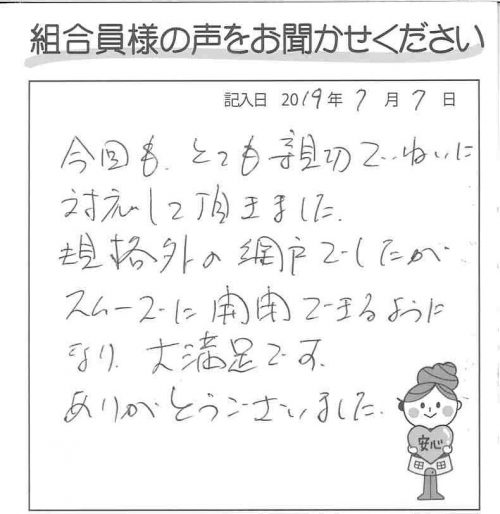 組合員様の声をお聞かせください
記入日 2019年7月7日
今回も、とても親切でいねいに
対応して頂きました。
規格外の網戸でしたが
スムーズに開閉できるように
なり、大満足です。
ありがとうございました。
安心